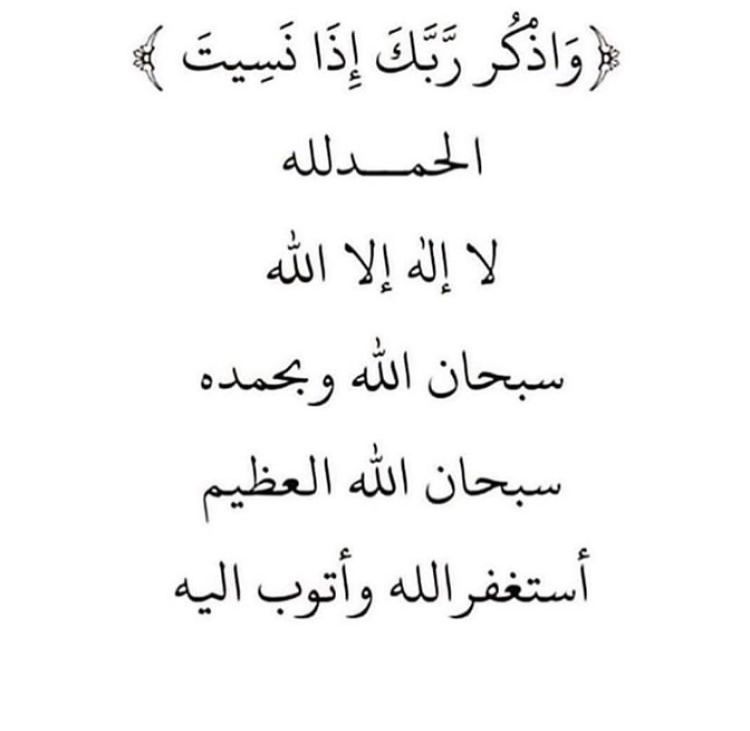 ﴿وَاذْكُر رَّبَّكَ إِذَا نَسِيتَ﴾
الحمـــدلله
لا إلٰه إلا الله
سبحان الله وبحمده
سبحان الله العظيم
أستغفرالله وأتوب اليه